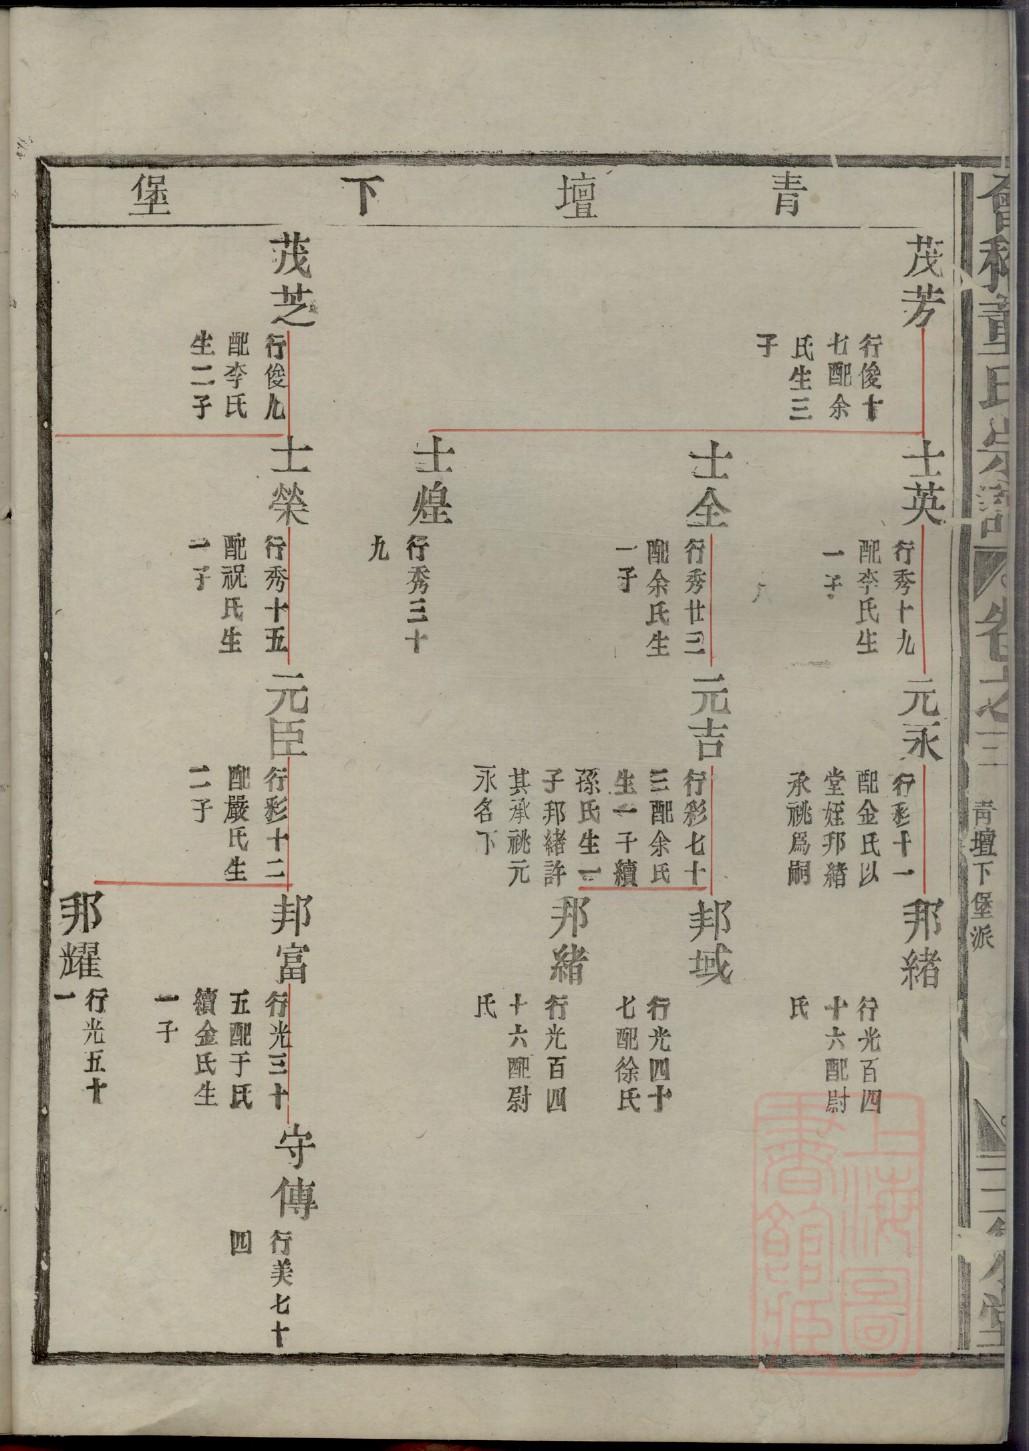 青壇下堡
茂芳
行俊十
七配余
氏生三
子
茂芝
行俊九
配李氏
生二子
士英
行秀十九
配李氏生
一子
士全
行秀廿三
配余氏生
一子
士煌
行秀三十
九
士榮
行秀十五
配祝氏生
一子
元永
行彩十一
配金氏以
堂姪邦緒
承祧爲嗣
元吉
行彩七十
三配余氏
生一子續
孫氏生一
子邦緒許
其承祧元
永名下
元臣
行彩十二
配嚴氏生
二子
邦緒
行光百四
十六配尉
氏
邦域
行光四十
七配徐氏
邦緒
行光百四
十六配尉
氏
邦富
行光三十
五配于氏
續金氏生
一子
邦耀
行光五十
一
守傳
行美七十
四
董氏宗譜
卷之三
青壇下堡派
上海圖書館藏